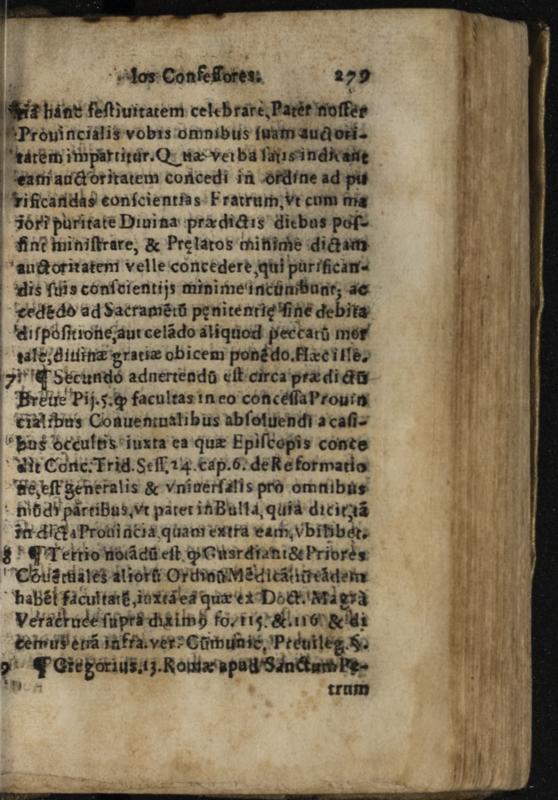 los Confessores. 279
hanc festiuitatem celebrare, Pater noster
Prouincialis vobis omnibus suam auctori-
tatem impartitur. Quæ verba satis indicant
eam auctoritatem concedi in ordine ad pu
rificandas conscientias Fratrum, vt cum ma
iori puritate Diuina prædictis diebus pos-
sint ministrare, & Pręlatos minime dictam
auctoritatem velle concedere, qui purifican-
dis suis conscientijs minime incumbunt; ac
cedẽdo ad Sacramẽtũ pęnitentię sine debita
dispositione, aut celãdo aliquod peccatũ mor
tale, diuinæ gratiæ obicem ponẽdo. Hæc ille.
7 ¶ Secundo aduertendũ est circa prædictũ
Breue Pij. 5. ꝙ facultas in eo concessa Prouin
cialibus Conuentualibus absoluendi a casi-
bus occultis iuxta ea quæ Episcopis conce
dit Conc. Trid. Sess. 24. cap. 6. de Reformatio
ne, est generalis & vniuersalis pro omnibus
mũdi partibus, vt patet in Bulla, quia dicit, tã
in dicta Prouincia, quam extra eam, vbilibet.
8 ¶ Tertio notãdũ est, ꝙ Guardiani & Priores
Cõuẽtuales aliorũ Ordinũ Mẽdicãtiũ eãdem
habẽt facultatẽ, iuxta ea quæ ex Doct. Magrã
Veracruce supra diximꝰ fo. 115. & 116. & di
cemus etiã infra. ver. Cõmunic. Preuileg. §.
9 ¶ Gregorius. 13. Romæ apud Sanctum Pe-
trum